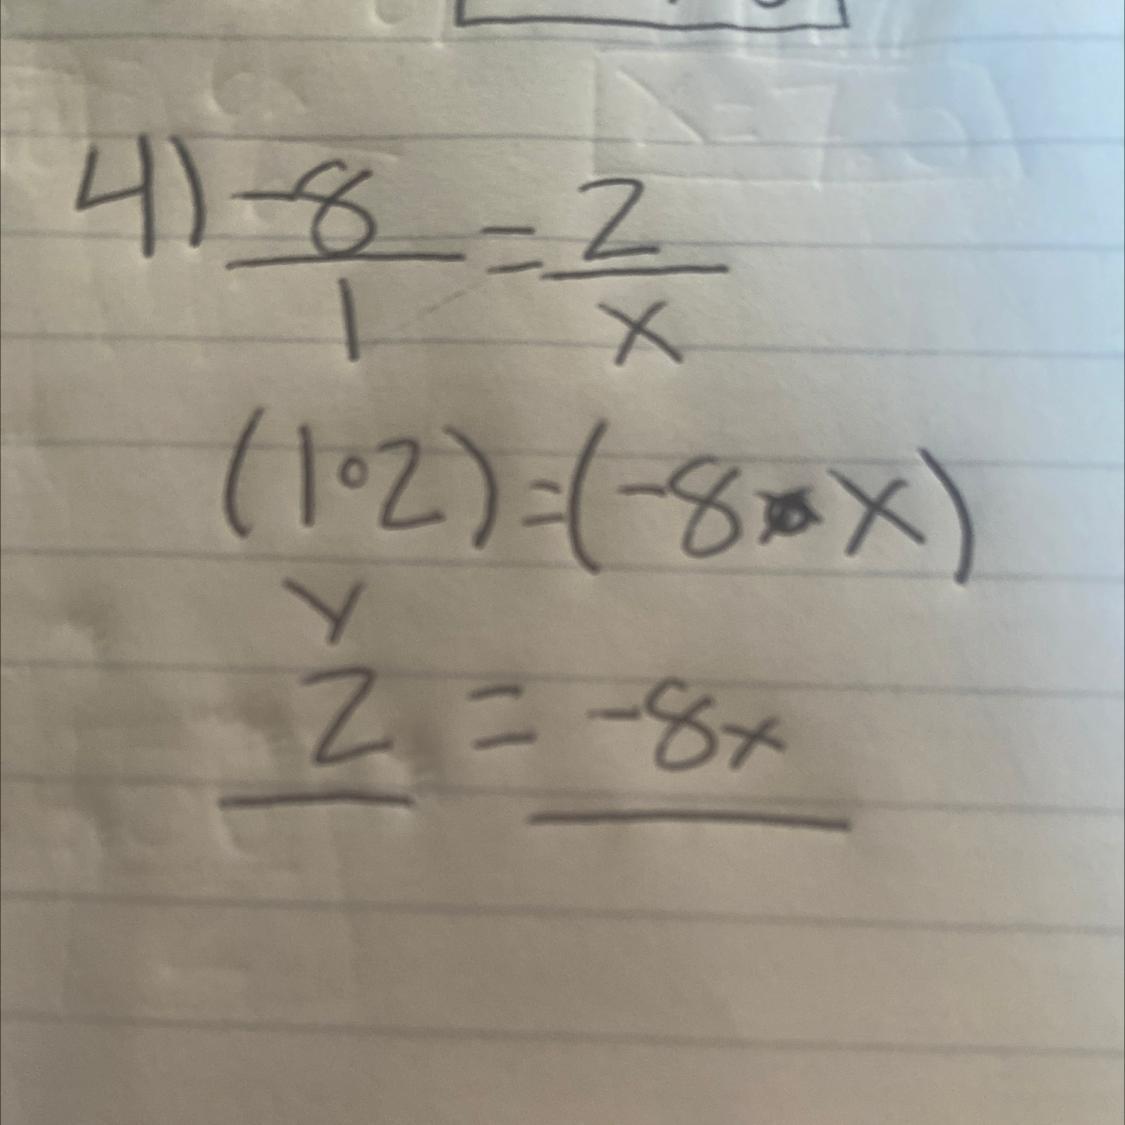 4) -8/1 = 2/x
(1•2)=(-8•x)
2 = -8x